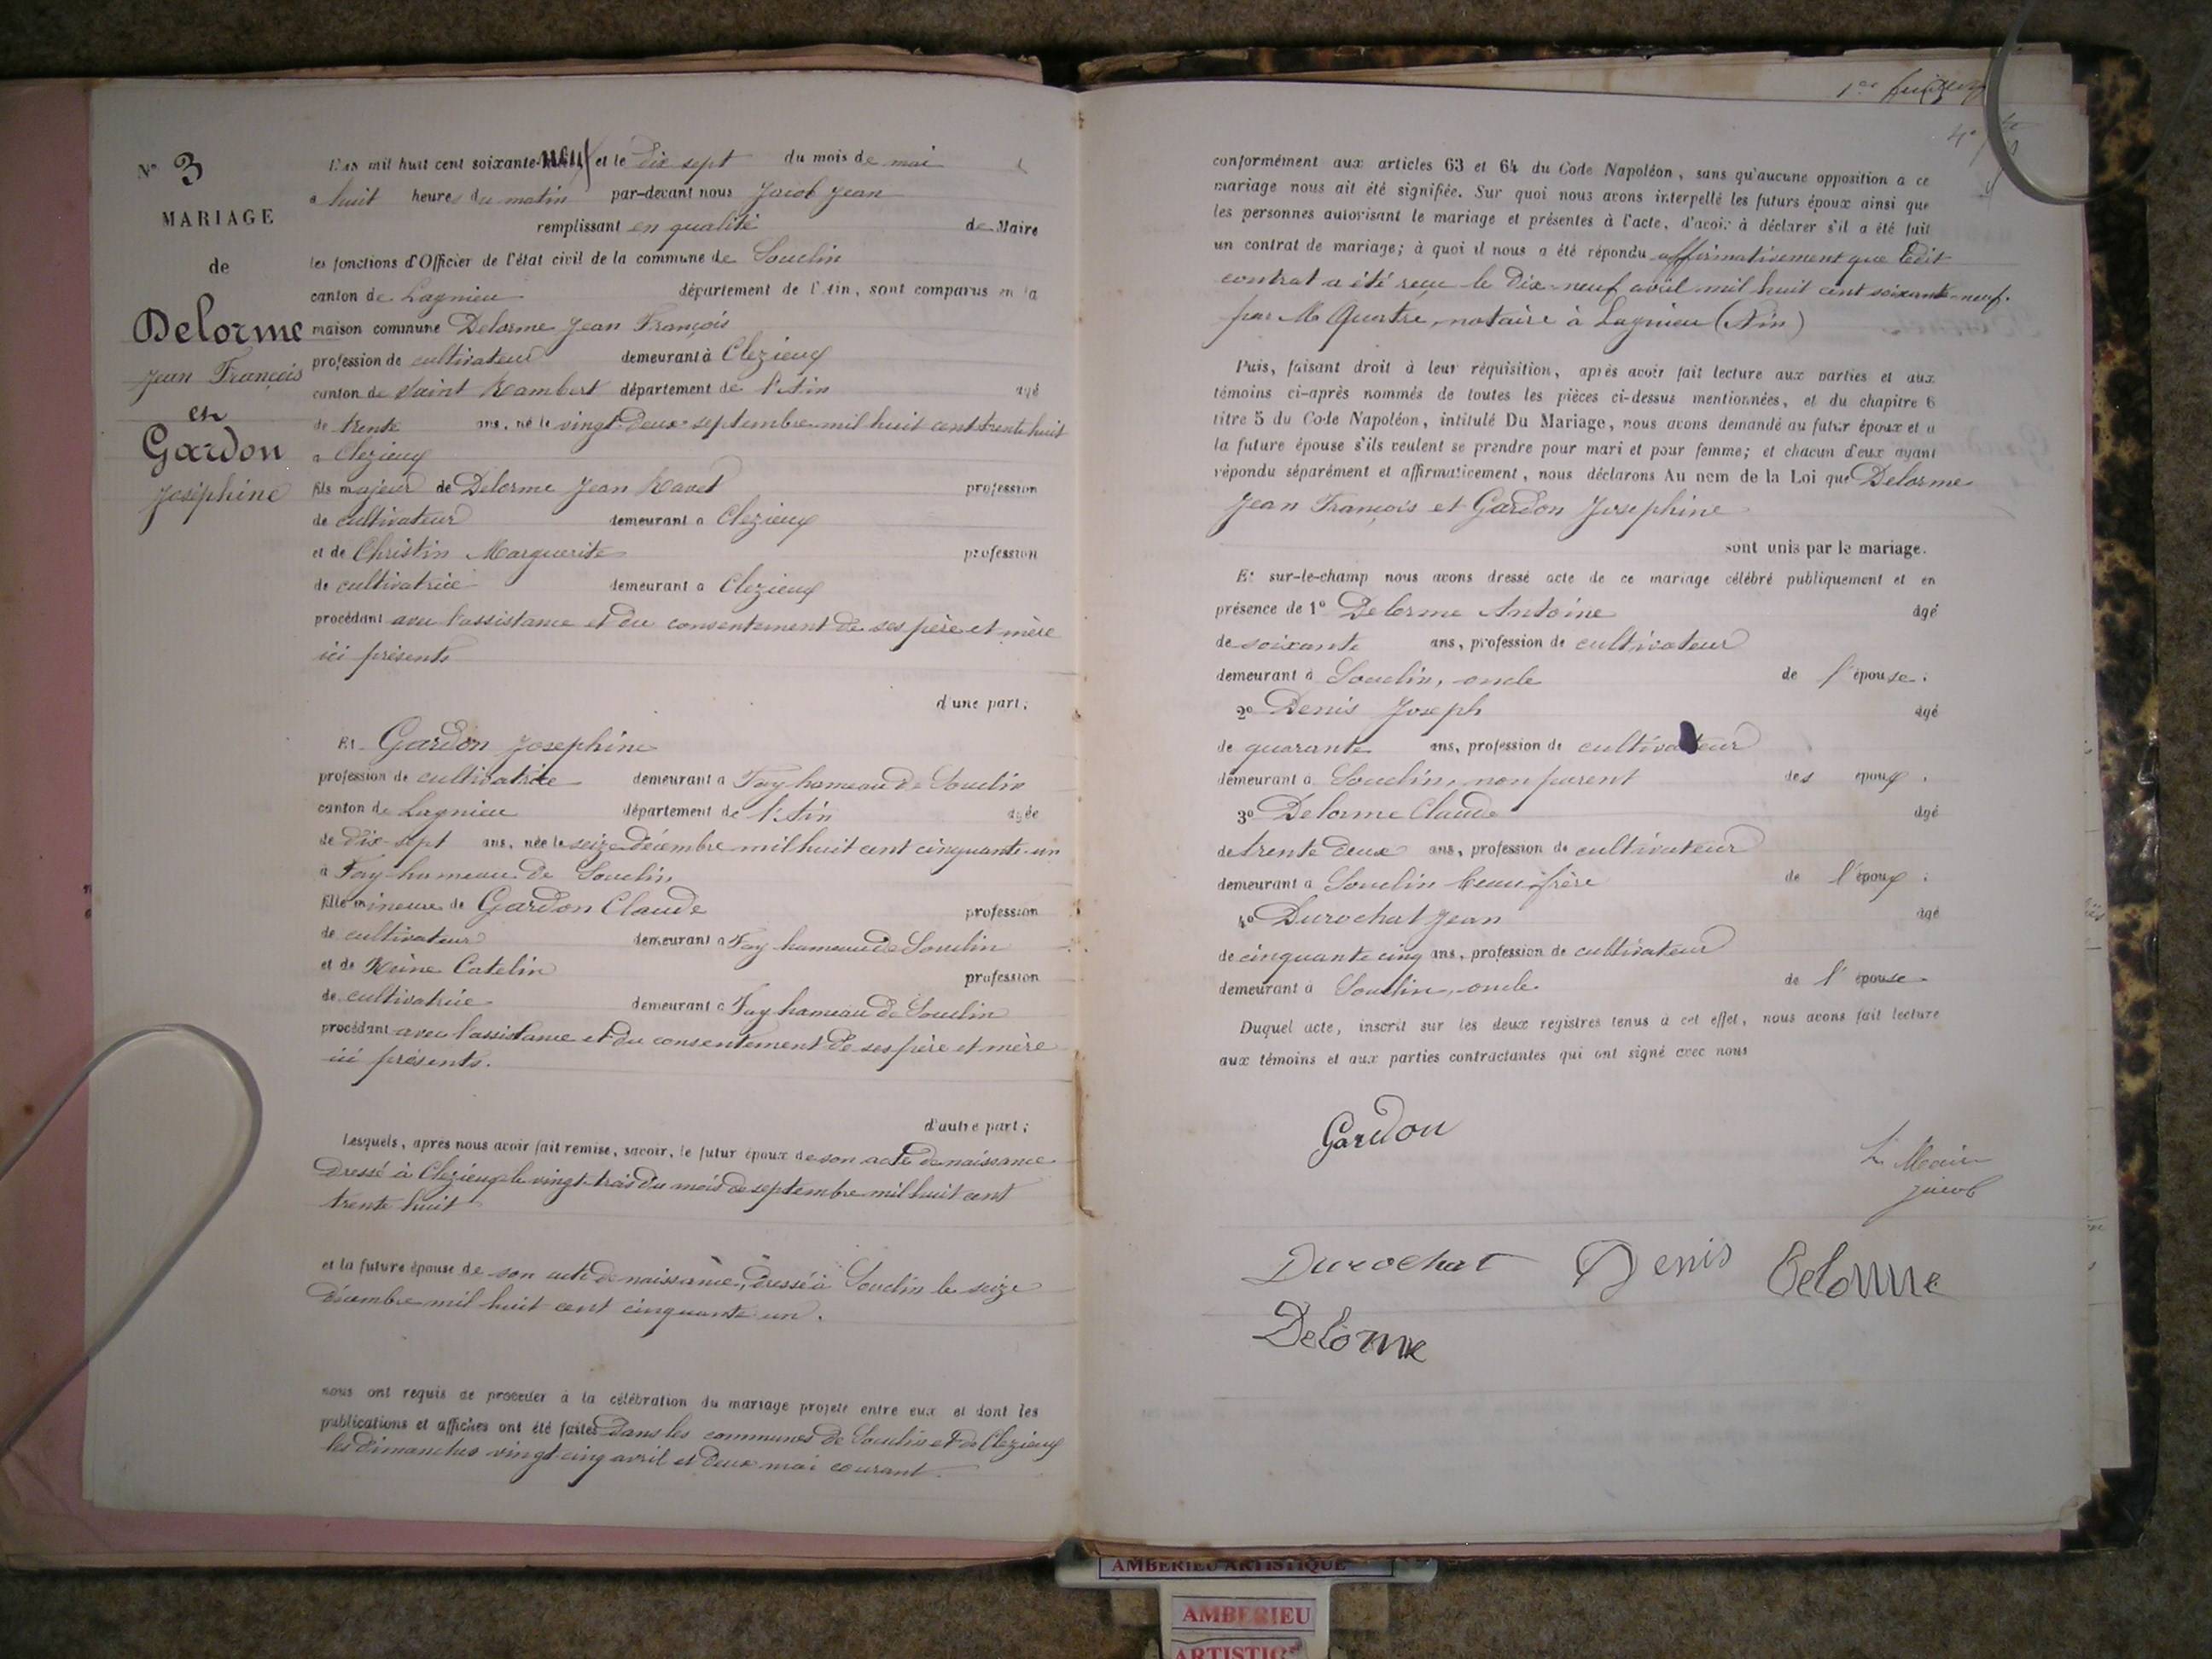 N° 3
MARIAGE
de
Delorme
Jean François
et
Gardon
Joséphine
L'an mil huit cent soixante-neuf et le dix sept du mois de mai
a huit heures du matin par-devant nous Jacob Jean
remplissant en qualité de Maire
les fonctions d'Officier de l'état civil de la commune de Souclin
canton de Lagnieu département de l'Ain, sont comparus en la
maison commune Delorme Jean François
profession de cultivateur demeurant à Clezieux
canton de Saint Rambert département de l'Ain agé
de trente ans, né le vingt-deux septembre mil huit cent trente huit
a Clezieux
fils majeur de Delorme Jean Ravet profession
de cultivateur demeurant a Clezieux
et de Christin Marguerite profession
de cultivatrice demeurant a Clezieux
procédant avec l'assistance et du consentement de ses père et mère
ici présents
d'une part;
Et Gardon Josephine
profession de cultivatrice demeurant a Fay hameau de Souclin
canton de Lagnieu département de l'Ain agée
de dix-sept ans, née le seize décembre mil huit cent cinquante-un
a Fay hameau de Souclin
fille mineure de Gardon Claude profession
de cultivateur demeurant a Fay hameau de Souclin
et de Reine Catelin profession
de cultivatrice demeurant a Fay hameau de Souclin
procédant avec l'assistance et du consentement de ses père et mère
ici présents.
d'autre part;
Lesquels, après nous avoir fait remise, savoir, le futur époux de son acte de naissance
dressé à Clezieux le vingt-trois du mois de septembre mil huit cent
trente huit
et la future épouse de son acte de naissance, dressé à Souclin le seize
décembre mil huit cent cinquante un.
nous ont requis de procéder à la célébration du mariage projeté entre eux et dont les
publications et affiches ont été faites dans les communes de Souclin et de Clezieux
les dimanches vingt-cinq avril et deux mai courant.
conformément aux articles 63 et 64 du Code Napoléon, sans qu'aucune opposition a ce
mariage nous ait été signifiée. Sur quoi nous avons interpellé les futurs époux ainsi que
les personnes autorisant le mariage et présentes à l'acte, d'avoir à déclarer s'il a été fait
un contrat de mariage; à quoi il nous a été répondu affirmativement que ledit
contrat a été reçu le dix-neuf avril mil huit cent soixante-neuf.
par Me Quartre, notaire à Lagnieu (Ain)
Puis, faisant droit à leur réquisition, après avoir fait lecture aux parties et aux
témoins ci-après nommés de toutes les pièces ci-dessus mentionnées, et du chapitre 6
titre 5 du Code Napoléon, intitulé Du Mariage, nous avons demandé au futur époux et a
la future épouse s'ils veulent se prendre pour mari et pour femme; et chacun d'eux ayant
répondu séparément et affirmativement, nous déclarons Au nom de la Loi que Delorme
Jean François et Gardon Josephine
sont unis par le mariage.
Et sur-le-champ nous avons dressé acte de ce mariage célébré publiquement et en
présence de 1° Delorme Antoine âgé
de soixante ans, profession de cultivateur
demeurant à Souclin, oncle de l'épouse.
2° Denis Joseph âgé
de quarante ans, profession de cultivateur
demeurant a Souclin, non parent des époux.
3° Delorme Claude âgé
de trente deux ans, profession de cultivateur
demeurant a Souclin beau-frère de l'époux.
4° Durochat Jean agé
de cinquante cinq ans, profession de cultivateur
demeurant à Souclin, oncle de l'épouse
Duquel acte, inscrit sur les deux registres tenus a cet effet, nous avons fait lecture
aux témoins et aux parties contractantes qui ont signé avec nous
Gardon
Le Maire
Jacob
Durochat Denis Delorme
Delorme
AMBERIEU ARTISTIQUE
AMBERIEU